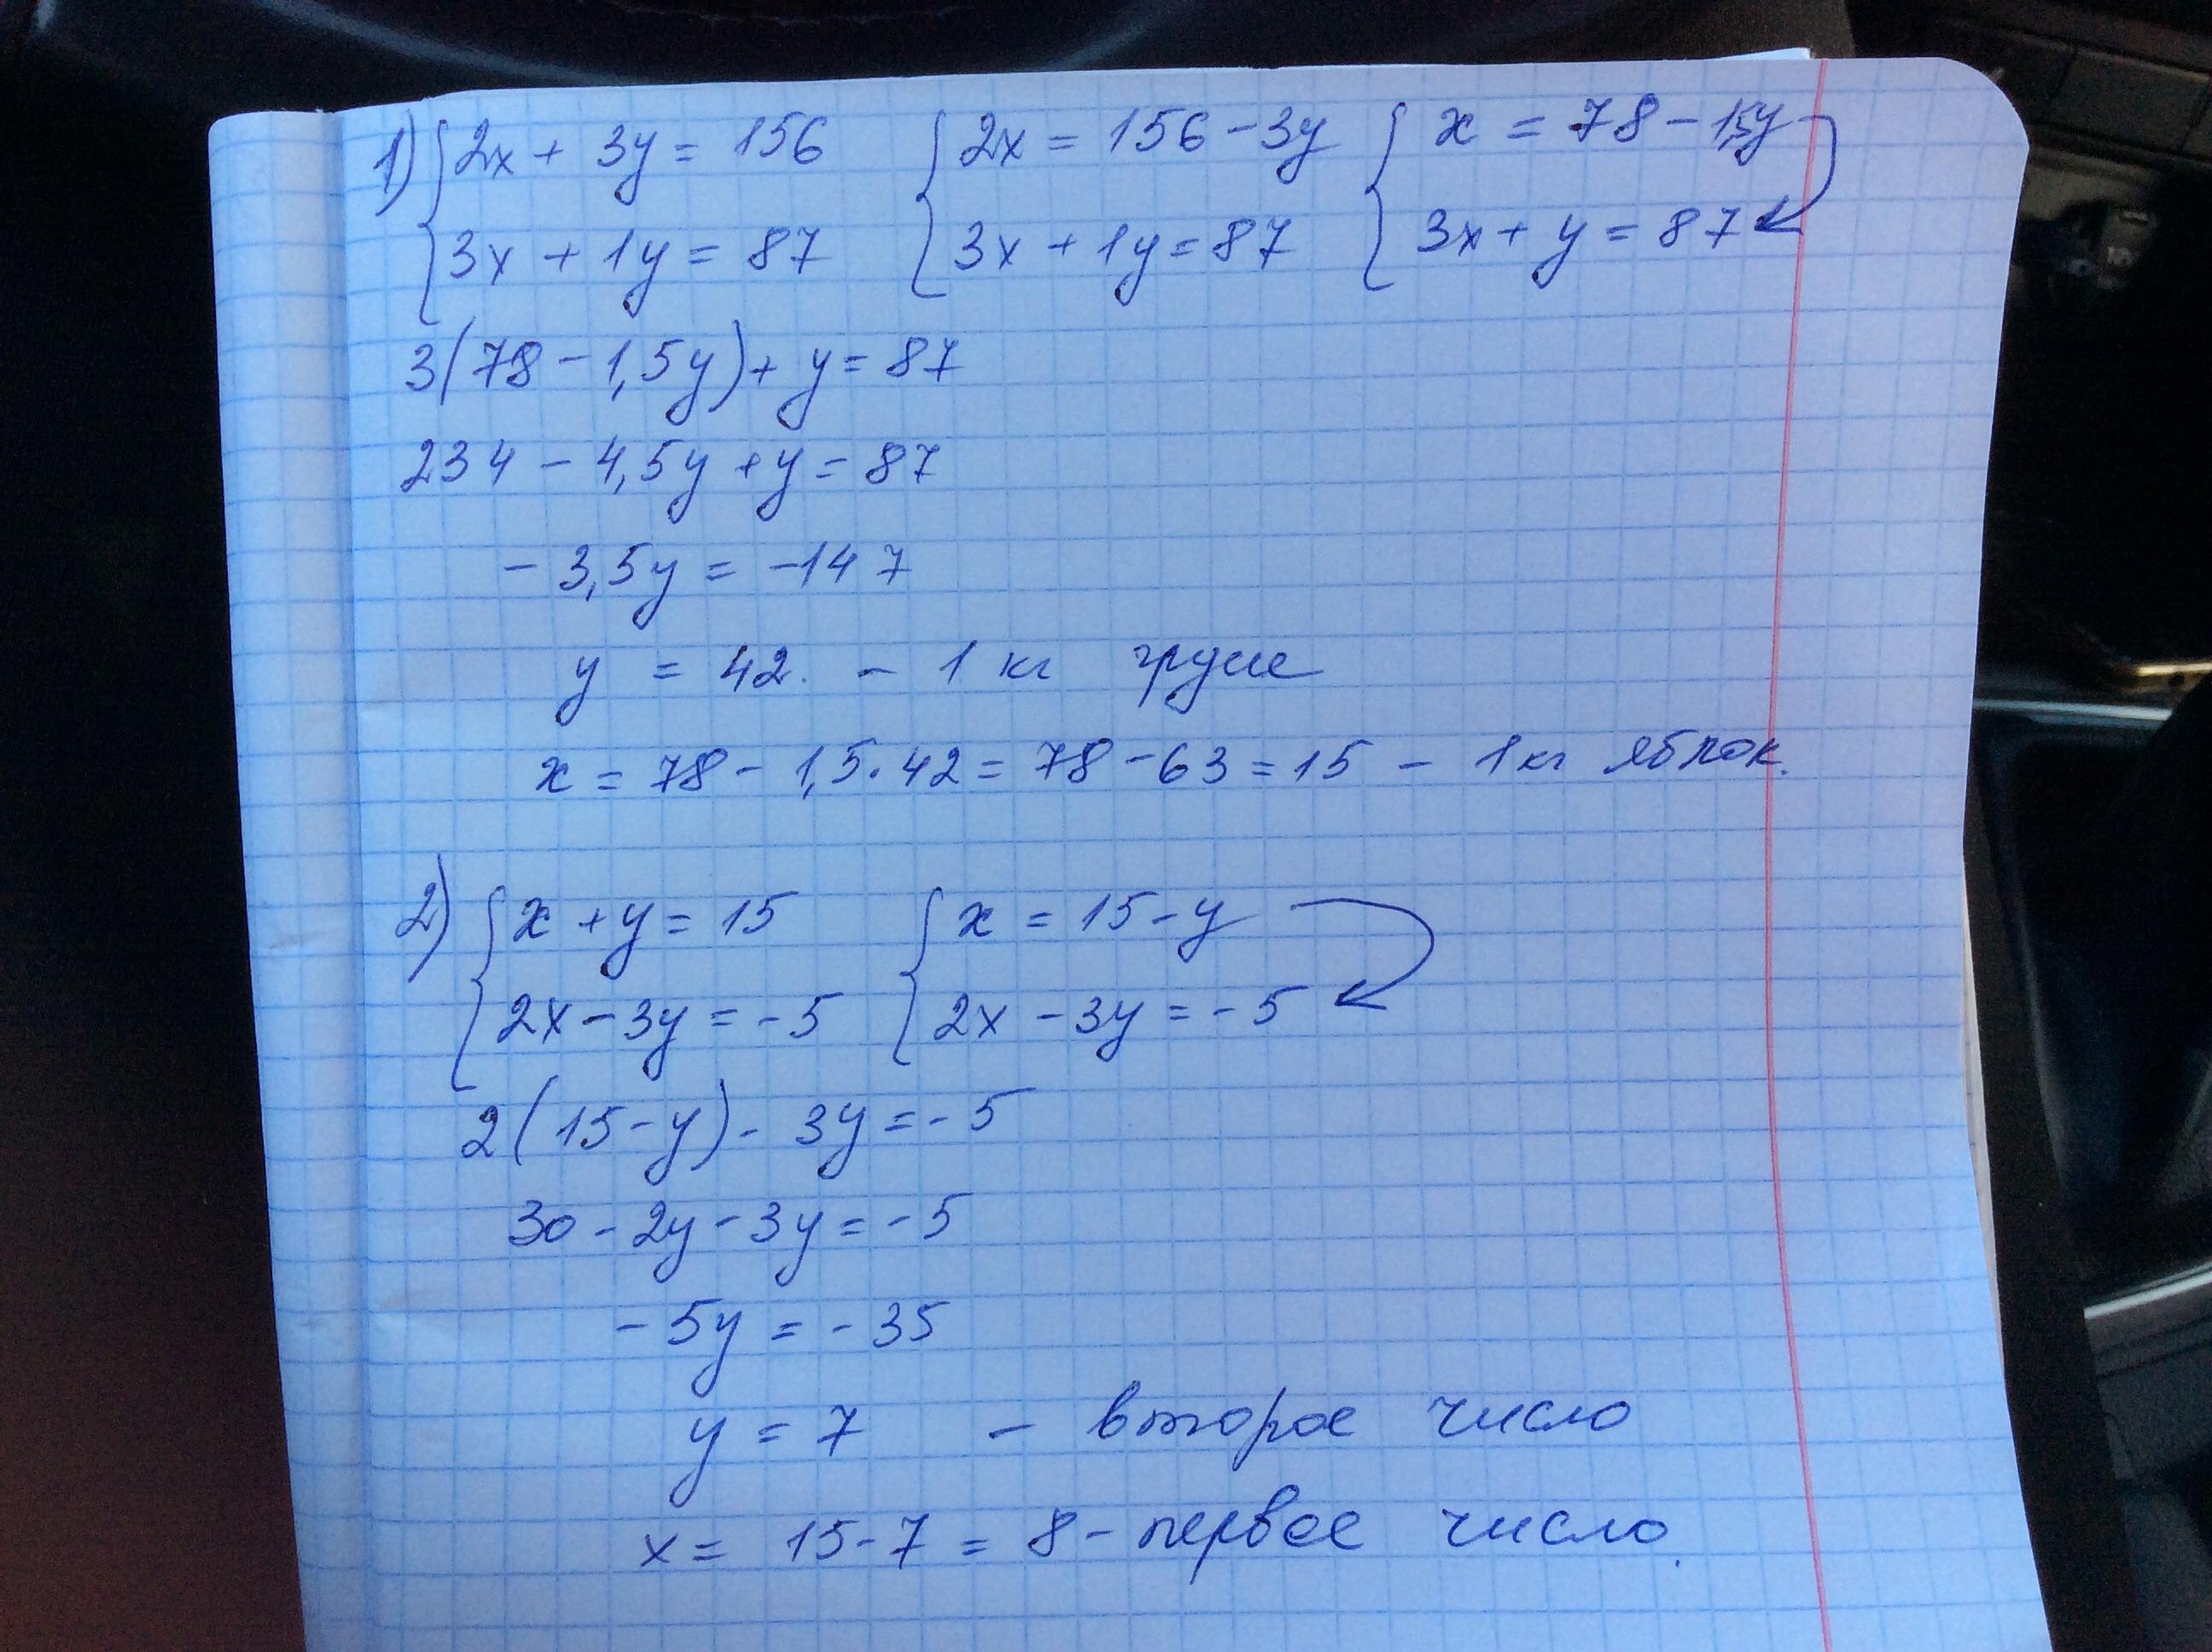 1) { 2x + 3y = 156 { 2x = 156 - 3y { x = 78 - 1,5y
3x + 1y = 87 3x + 1y = 87 3x + y = 87
3(78 - 1,5y) + y = 87
234 - 4,5y + y = 87
- 3,5y = -147
y = 42. - 1 кг груш
x = 78 - 1,5·42 = 78 - 63 = 15 - 1 кг яблок.
2) { x + y = 15 { x = 15 - y
2x - 3y = -5 2x - 3y = -5
2(15 - y) - 3y = -5
30 - 2y - 3y = -5
- 5y = - 35
y = 7 - второе число
x = 15 - 7 = 8 - первое число.